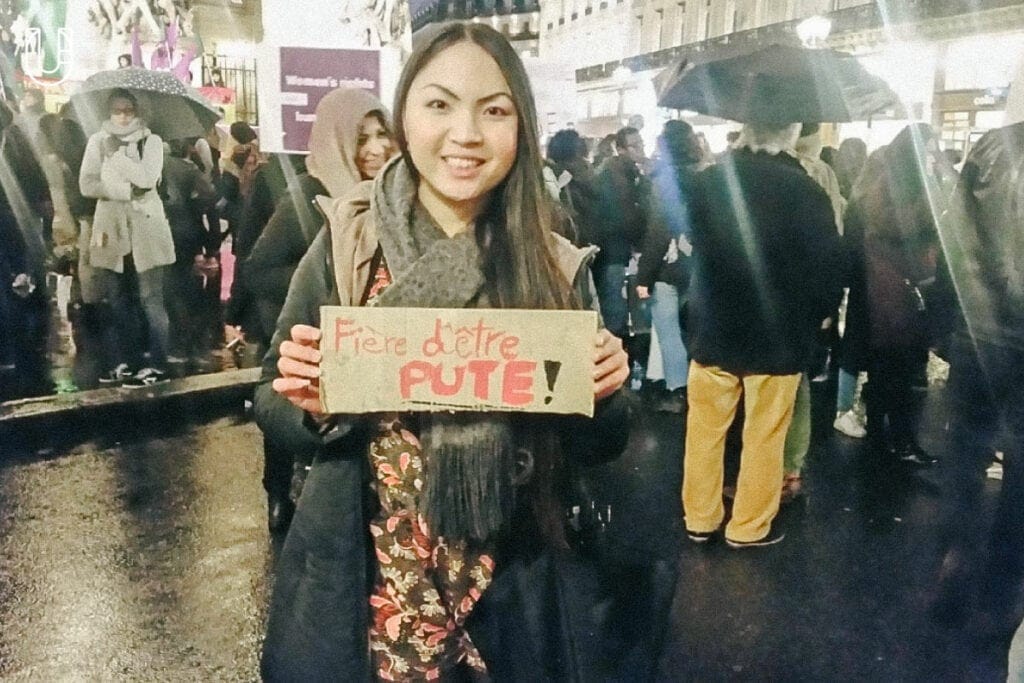 Women's rights
Fière d'être
PUTE!